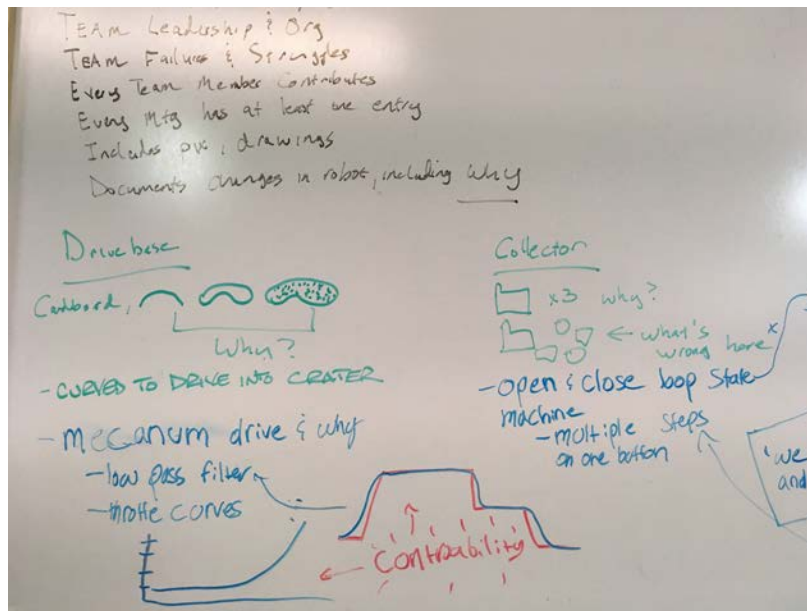 TEAM Leadership & Org
TEAM Failures & Struggles
Every Team Member Contributes
Every Mtg has at least one entry
Includes pix, drawings
Documents changes in robot, including why
Drive base
Cardboard,
Why?
- CURVED TO DRIVE INTO CRATER
- mecanum drive & why
- low pass filter
- throttle curves
Collector
x3 why?
← what's
wrong here
x
- open & close loop State
machine
- multiple steps
on one button
"we
and
Controability